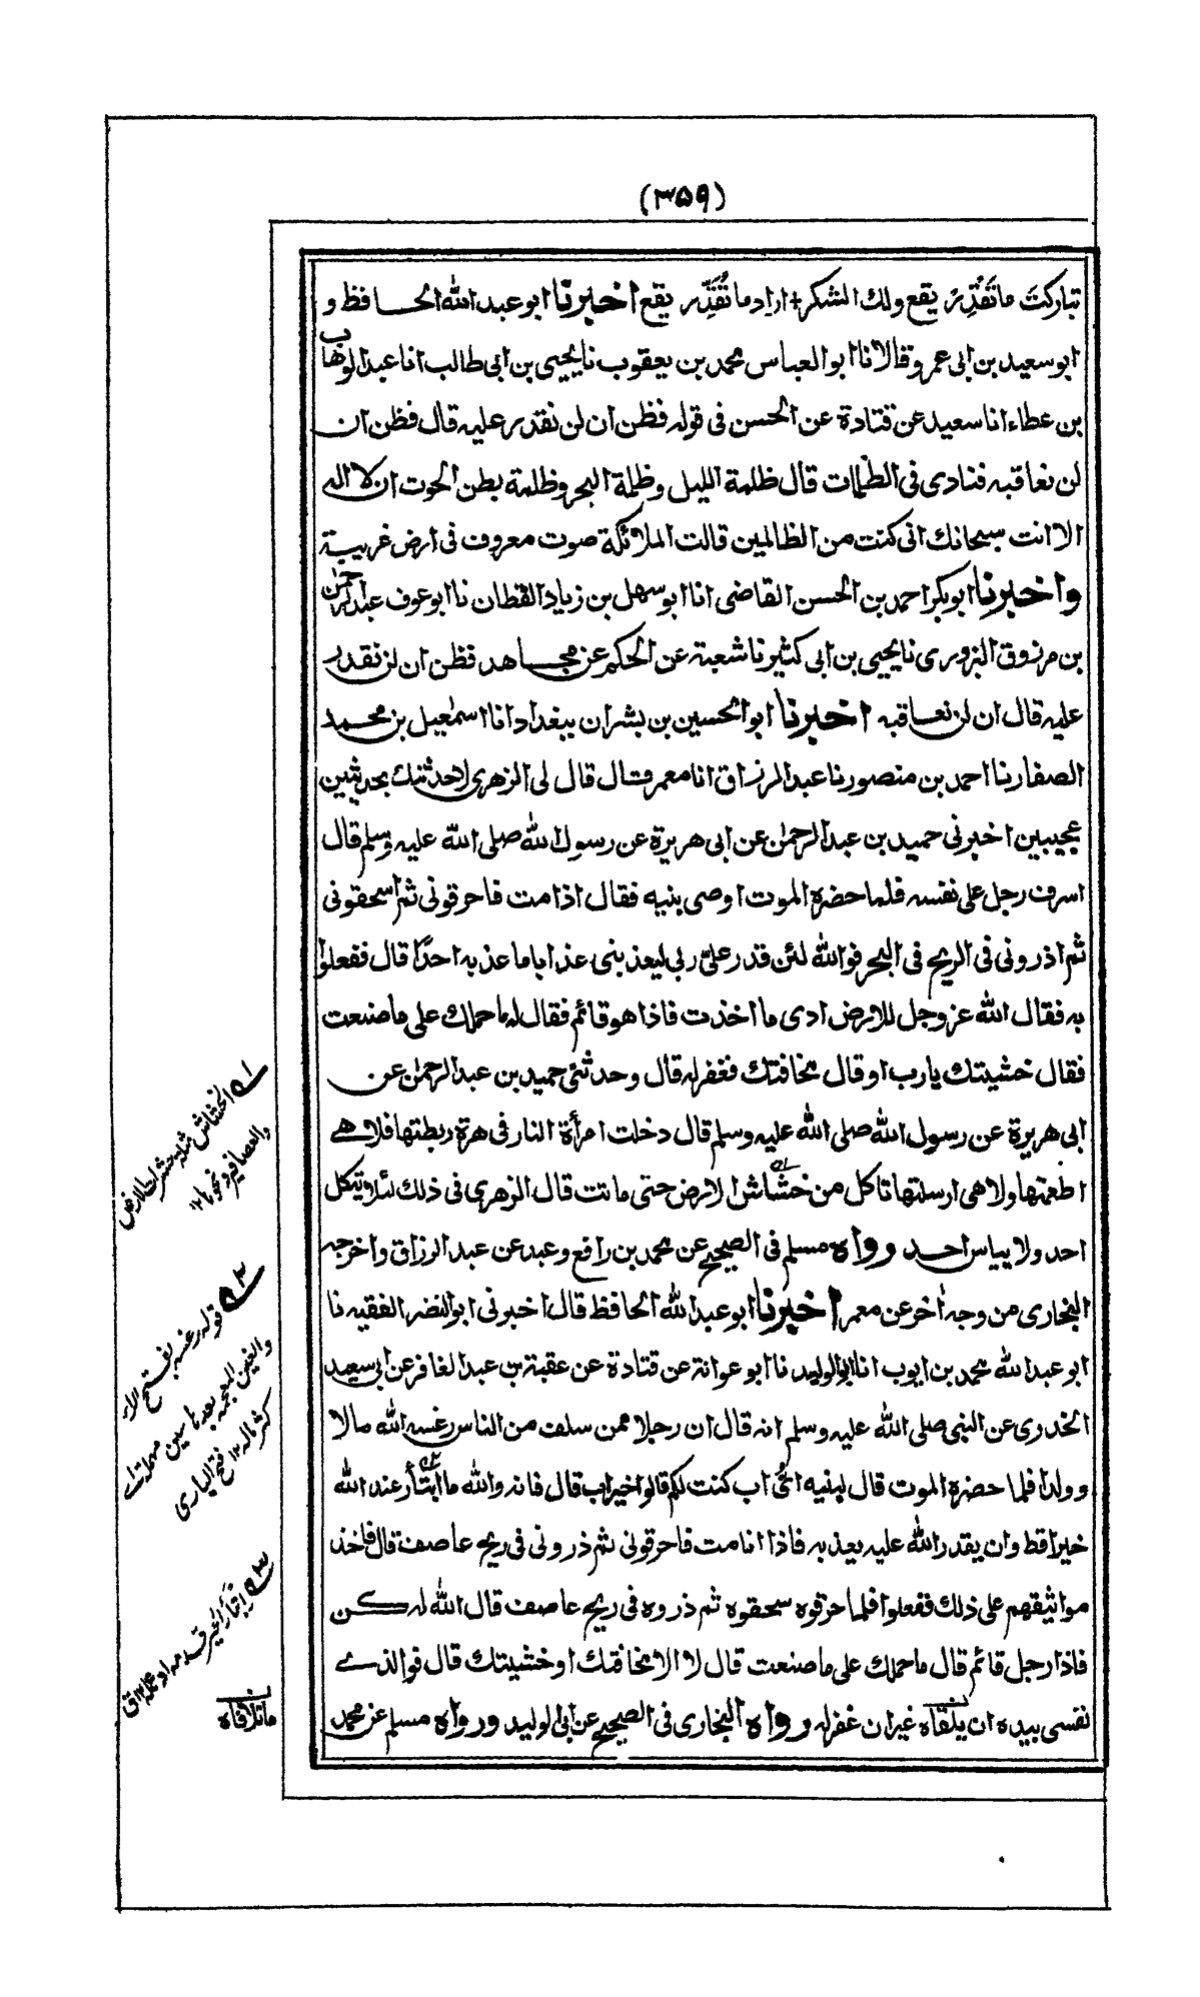 (٣٥٩)
تباركتَ ما تَقْدِرْ يقع ولك الشكر + اراد ما تُقَدِّر يقع اخبرنا ابو عبد الله الحافظ و
ابو سعيد بن ابى عمرو قالا نا ابو العباس محمد بن يعقوب نا يحيى بن ابى طالب انا عبد الوهاب
بن عطاء انا سعيد عن قتادة عن الحسن فى قوله فظن ان لن نقدر عليه قال فظن ان
لن نعاقبه فنادى فى الظلمات قال ظلمة الليل وظلمة البحر وظلمة بطن الحوت ان لا اله
الا انت سبحانك انى كنت من الظالمين قالت الملائكة صوت معروف فى ارض غريبة
واخبرنا ابو بكر احمد بن الحسن القاضى انا ابو سهل بن زياد القطان نا ابو عوف عبد الرحمن
بن مرزوق البزورى نا يحيى بن ابى كثير نا شعبة عن الحكم عن مجاهد فظن ان لن نقدر
عليه قال ان لن نعاقبه اخبرنا ابو الحسين بن بشران ببغداد انا اسمعيل بن محمد
الصفار نا احمد بن منصور نا عبد الرزاق انا معمر قال قال لى الزهرى لاحدثنك بحديثين
عجيبين اخبرنى حميد بن عبد الرحمن عن ابى هريرة عن رسول الله صلى الله عليه وسلم قال
اسرف رجل على نفسه فلما حضره الموت اوصى بنيه فقال اذا مت فاحرقونى ثم اسحقونى
ثم اذرونى فى الريح فى البحر فوالله لئن قدر علىّ ربى ليعذبنى عذابا ما عذبه احدًا قال ففعلوا
به فقال الله عز وجل للارض ادى ما اخذت فاذا هو قائم فقال له ما حملك على ما صنعت
فقال خشيتك يارب او قال مخافتك فغفر له قال وحدثنى حميد بن عبد الرحمن عن
ابى هريرة عن رسول الله صلى الله عليه وسلم قال دخلت امرأة النار فى هرة ربطتها فلا هى
اطعمتها ولا هى ارسلتها تاكل من خشاش الارض حتى ماتت قال الزهرى فى ذلك لئلا يتكل
احد ولا ييأس احد رواه مسلم فى الصحيح عن محمد بن رافع وعبد عن عبد الرزاق واخرجه
البخارى من وجه اٰخر عن معمر اخبرنا ابو عبد الله الحافظ قال اخبرنى ابو النضر الفقيه نا
ابو عبد الله محمد بن ايوب انا ابو الوليد نا ابو عوانة عن قتادة عن عقبة بن عبد الغافر عن ابى سعيد
الخدرى عن النبى صلى الله عليه وسلم انه قال ان رجلا ممن سلف من الناس رغسه الله مالا
وولدا فلما حضره الموت قال لبنيه اىّ اب كنت لكم قالوا خير اب قال فانه والله ما ابتأر عند الله
خيرا قط وان يقدر الله عليه يعذبه فاذا انا مت فاحرقونى ثم ذرونى فى ريح عاصف قال فاخذ
مواثيقهم على ذلك ففعلوا فلما حرقوه سحقوه ثم ذروه فى ريح عاصف قال الله له كن
فاذا رجل قائم قال ما حملك على ما صنعت قال لا الا مخافتك او خشيتك قال فوالذى
نفسى بيده ان يلقاه غير ان غفر له رواه البخارى فى الصحيح عن ابى الوليد ورواه مسلم عن محمد
له ١ الخشاش مثلثه حشرات الارض
والعصافير ونحوها ١٢
له ٢ قوله رغسه بفتح الراء
والغين المعجمة بعدها سين مهملة اى
كثر ماله ١٢ فتح البارى
له ٣ ابتأر الخير قدمه او عمله ١٢ ق
ما تلافاه